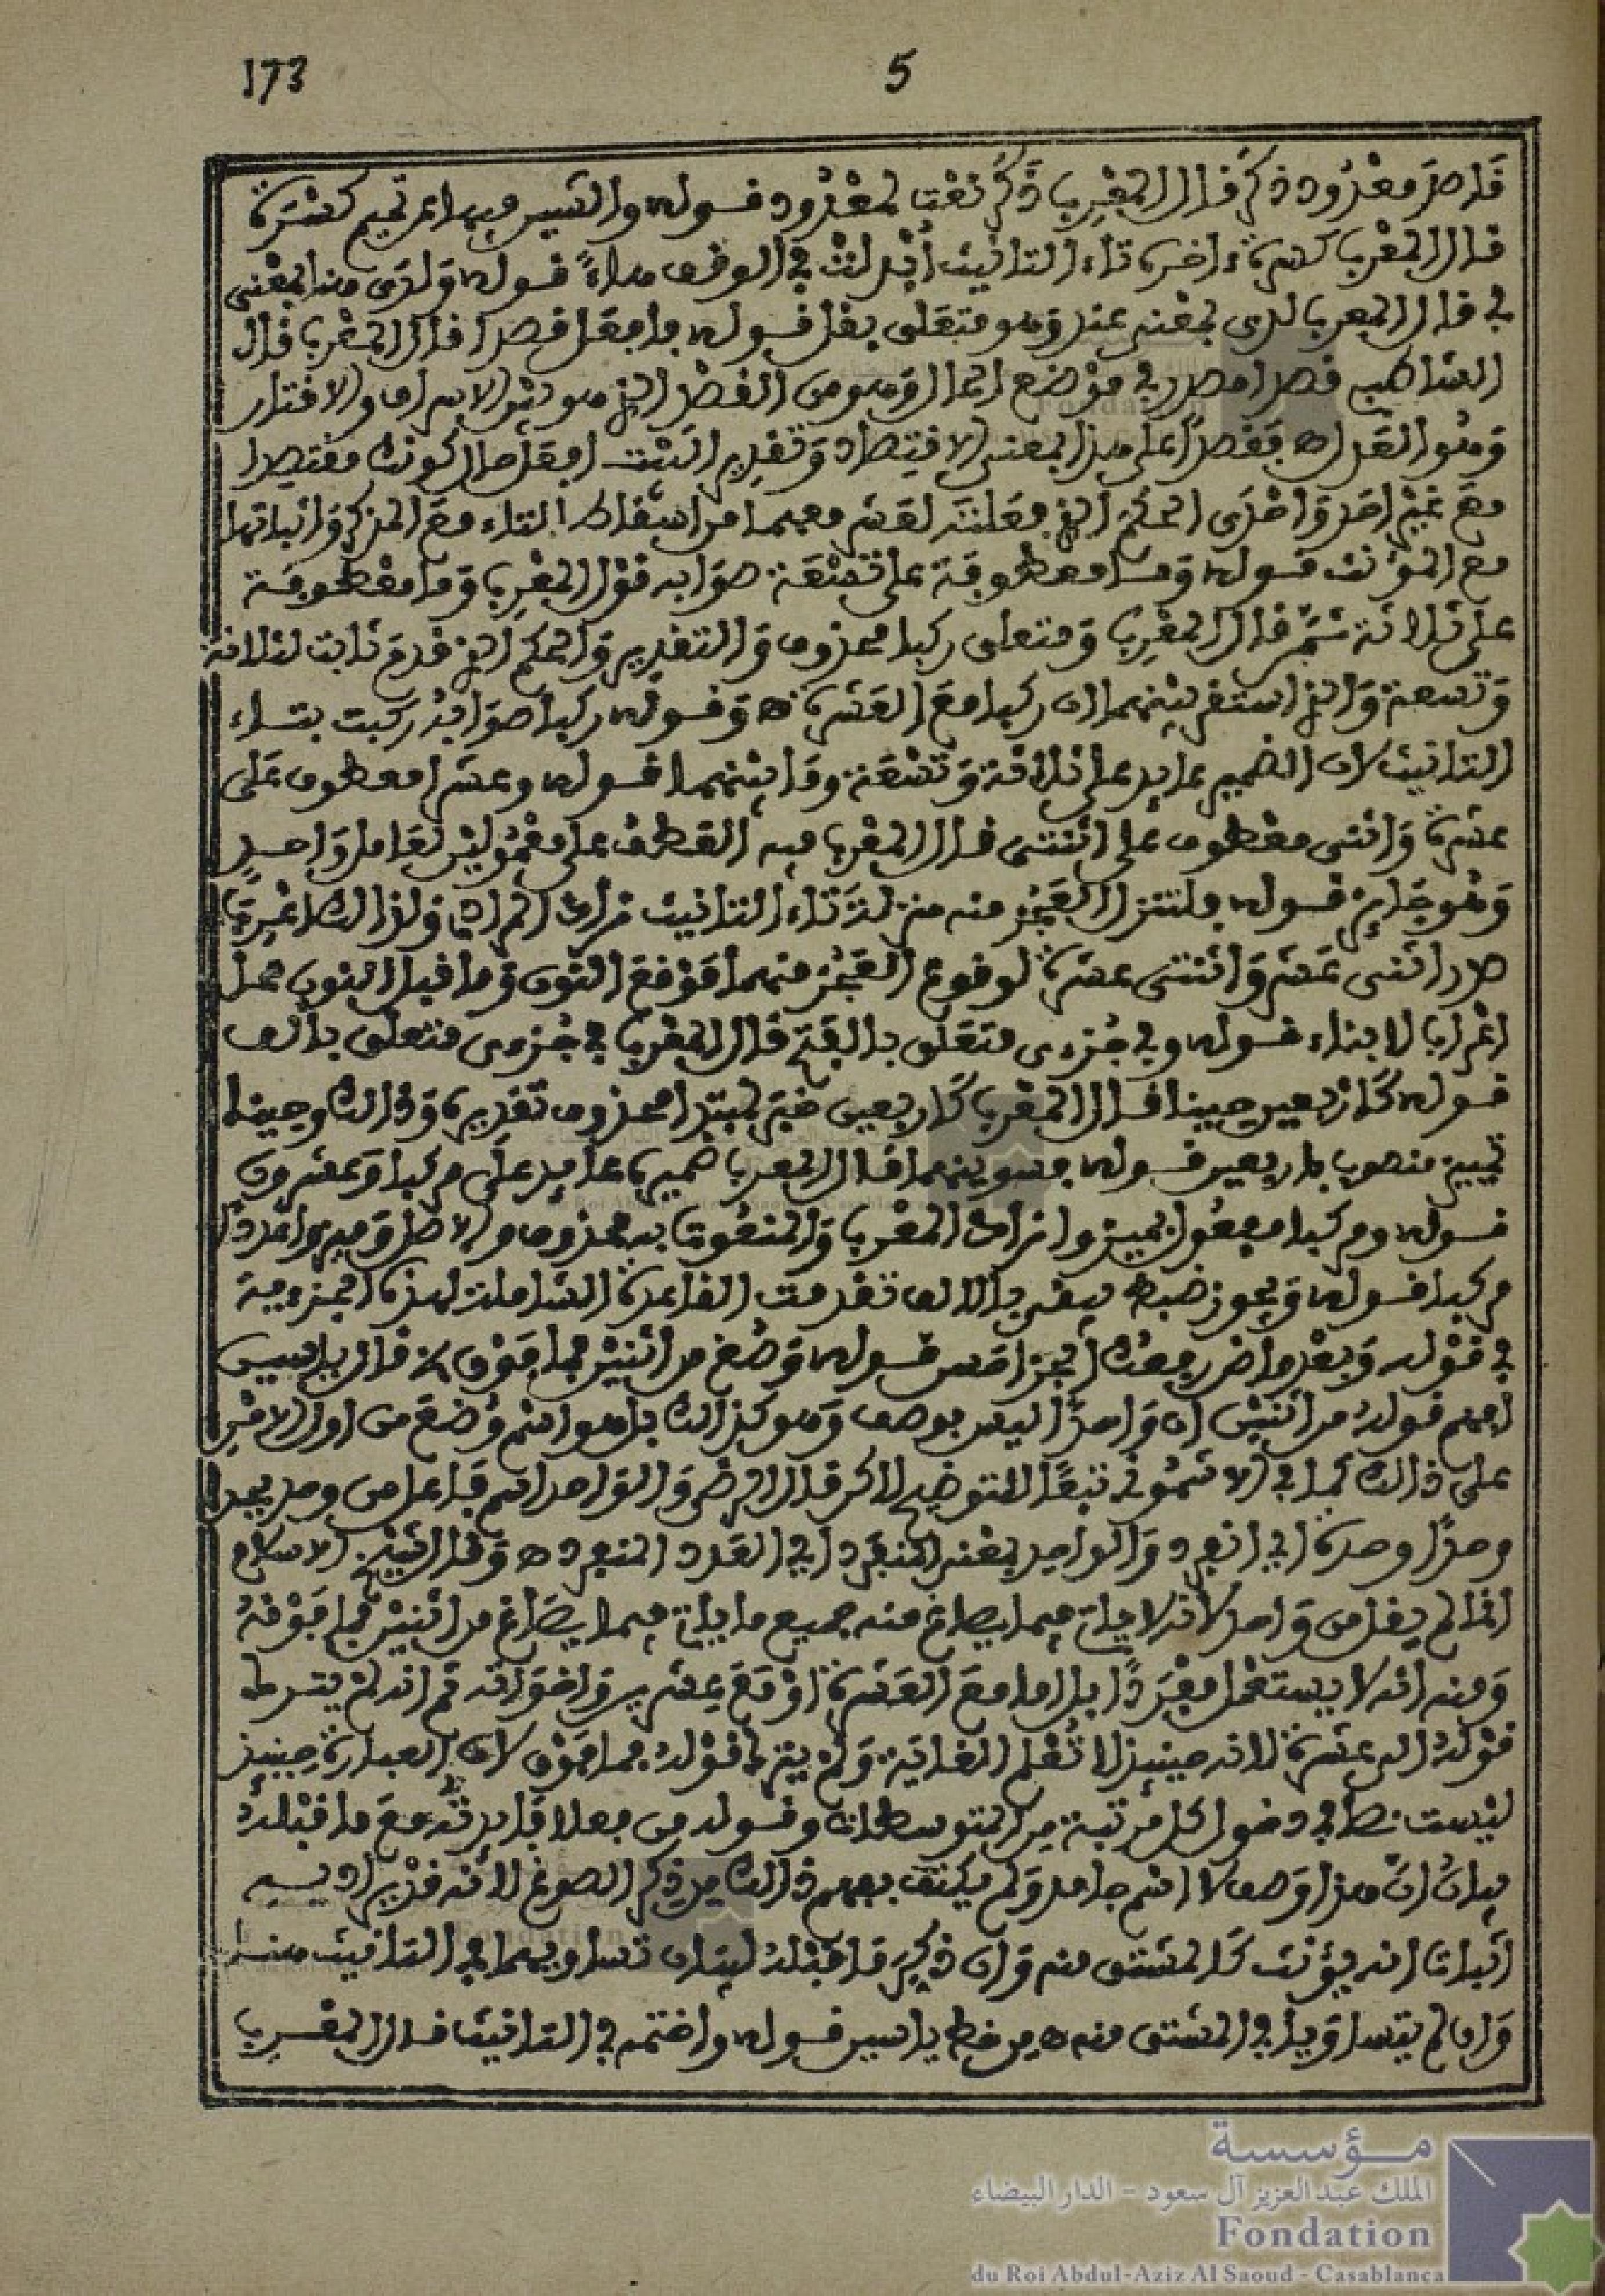 173
5
قاصد معدود ذكر قال المعرب ذكر نعت لمعدود قوله والشين فيها عن تميم كسرة
قال المعرب كسرة ءاخره تاء التانيث أبدلت في الوقف هاءً قوله ولدى هنا بمعنى
في قال المعرب لدى بمعنى عند وهو متعلق بقل قوله فافعل قصدا قال المعرب قال
الشاطبي قصدا مصدر في موضع الحال وهو من القصد الذي هو بين الاسراف والاقتار
وهو العدل اه فقصدًا على هذا بمعنى الاقتصاد وتقدير البيت افعل حال كونك مقتصدا
مع غير احد واحدى الحكم الذي فعلته لعشر معهما من اسقاط التاء مع المذكر واثباتها
مع المؤنث قوله وما معطوفة على تسعة صوابه قول المعرب وما معطوفة
على ثلاثة ثمّ قال المعرب ومتعلق ركبا محذوف والتقدير والحكم الذي قدم ثابت لثلاثة
وتسعة والذي استقر بينهما ان ركبا مع العشرة اه وقوله ركبا صوابه ركبت بتاء
التانيث لان الضمير عايد على ثلاثة وتسعة وما بينهما قوله وعشر معطوف على
عشرة واثنى معطوف على اثنتى قال المعرب فيه العطف على معمولين لعامل واحد
وهو جايز قوله فلتنزل العجز منه منزلة تاء التانيث زاد المرادي ولذلك اعرب
صدر اثنى عشر واثنتى عشرة لوقوع العجز منهما موقع النون وما قبل النون محل
اعراب لا بناء قوله وفي جزءى متعلق بالفتح قال المعرب في جزءى متعلق بألف
قوله كاربعين حينا قال المعرب كاربعين خبر لمبتدا محذوف تقديره وذلك وحينا
تمييز منصوب باربعين قوله فسوينهما قال المعرب ضميره عايد على مركبا وعشرون
قوله ومركبا مفعول بميزوا زاد المعرب والمنعوت به محذوف والاصل وميزوا عددًا
مركبا قوله ويجوز ضبطه يبقى بالالف تقدمت القاعدة الشاملة لهذه الجزءية
في قوله وبعد ماض رفعك الجزا حسن قوله وصغ من اثنين فما فوق الخ قال ياسين
افهم قوله من اثنين ان واحدًا ليس بوصف وهو كذلك بل هو اسم وضع من اول الامر
على ذلك كما في الاشموني تبعًا للتوضيح لاكن قال الرضى والواحد اسم فاعل من وحد يحد
وحدًا وحدة اي انفرد والواحد بمعنى المنفرد اي العدد المنفرد اه وقال الشيخ الاسلام
انما لم يقل من واحد لانه لا ياتي فيما يصاغ منه جميع ما ياتي فيما يصاغ من اثنين فما فوقه
ومنه انه لا يستعمل مفردًا بل اما مع العشرة او مع عشرين واخواته ثم انه لم يشرط
قوله الى عشرة لانه حينيذ لا تُعلم الغاية ولم يترك قوله فما فوق لان العبارة حينيذ
ليست نصا في دخول كل مرتبة من المتوسطات وقوله من فعلا فايدته مع ما قبله
بيان ان هذا وصف لا اسم جامد ولم يكتف بفهم ذلك من ذكر الصوغ لانه قد يراد به
اثبات انه يؤنث كالمشتق منه وان ذكر ما قبله لبيان تساويهما في التانيث هنا
وان لم يتساويا في المشتق منه اه من خط ياسين قوله واختمه في التانيث قال المعرب
مؤسسة
الملك عبد العزيز آل سعود - الدار البيضاء
Fondation
du Roi Abdul-Aziz Al Saoud - Casablanca